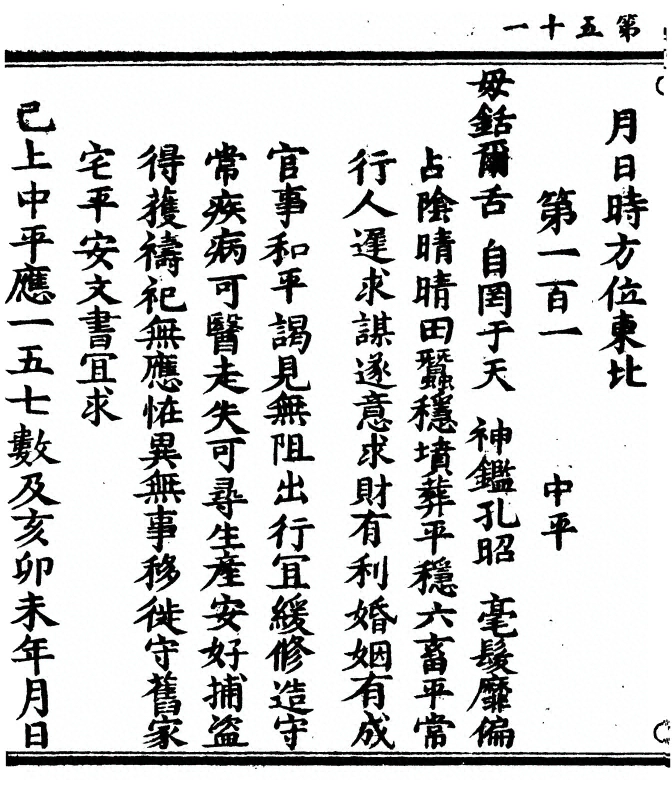 第五十一
月日時方位東北
第一百一　中平
毋銛爾舌　自罔于天　神鑑孔昭　毫髮靡偏
占陰晴晴田蠶穩墳葬平穩六畜平常
行人遲求謀遂意求財有利婚姻有成
官事和平謁見無阻出行冝緩修造守
常疾病可醫走失可尋生產安好捕盗
得獲禱祀無應恠異無事移徙守舊家
宅平安文書冝求
已上中平應一五七數及亥卯未年月日